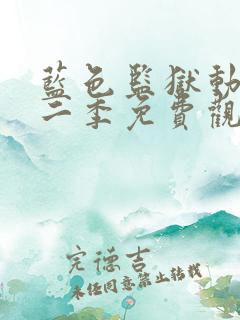 藍色監獄動
二季免費觀
完德吉
未经同意禁止转载